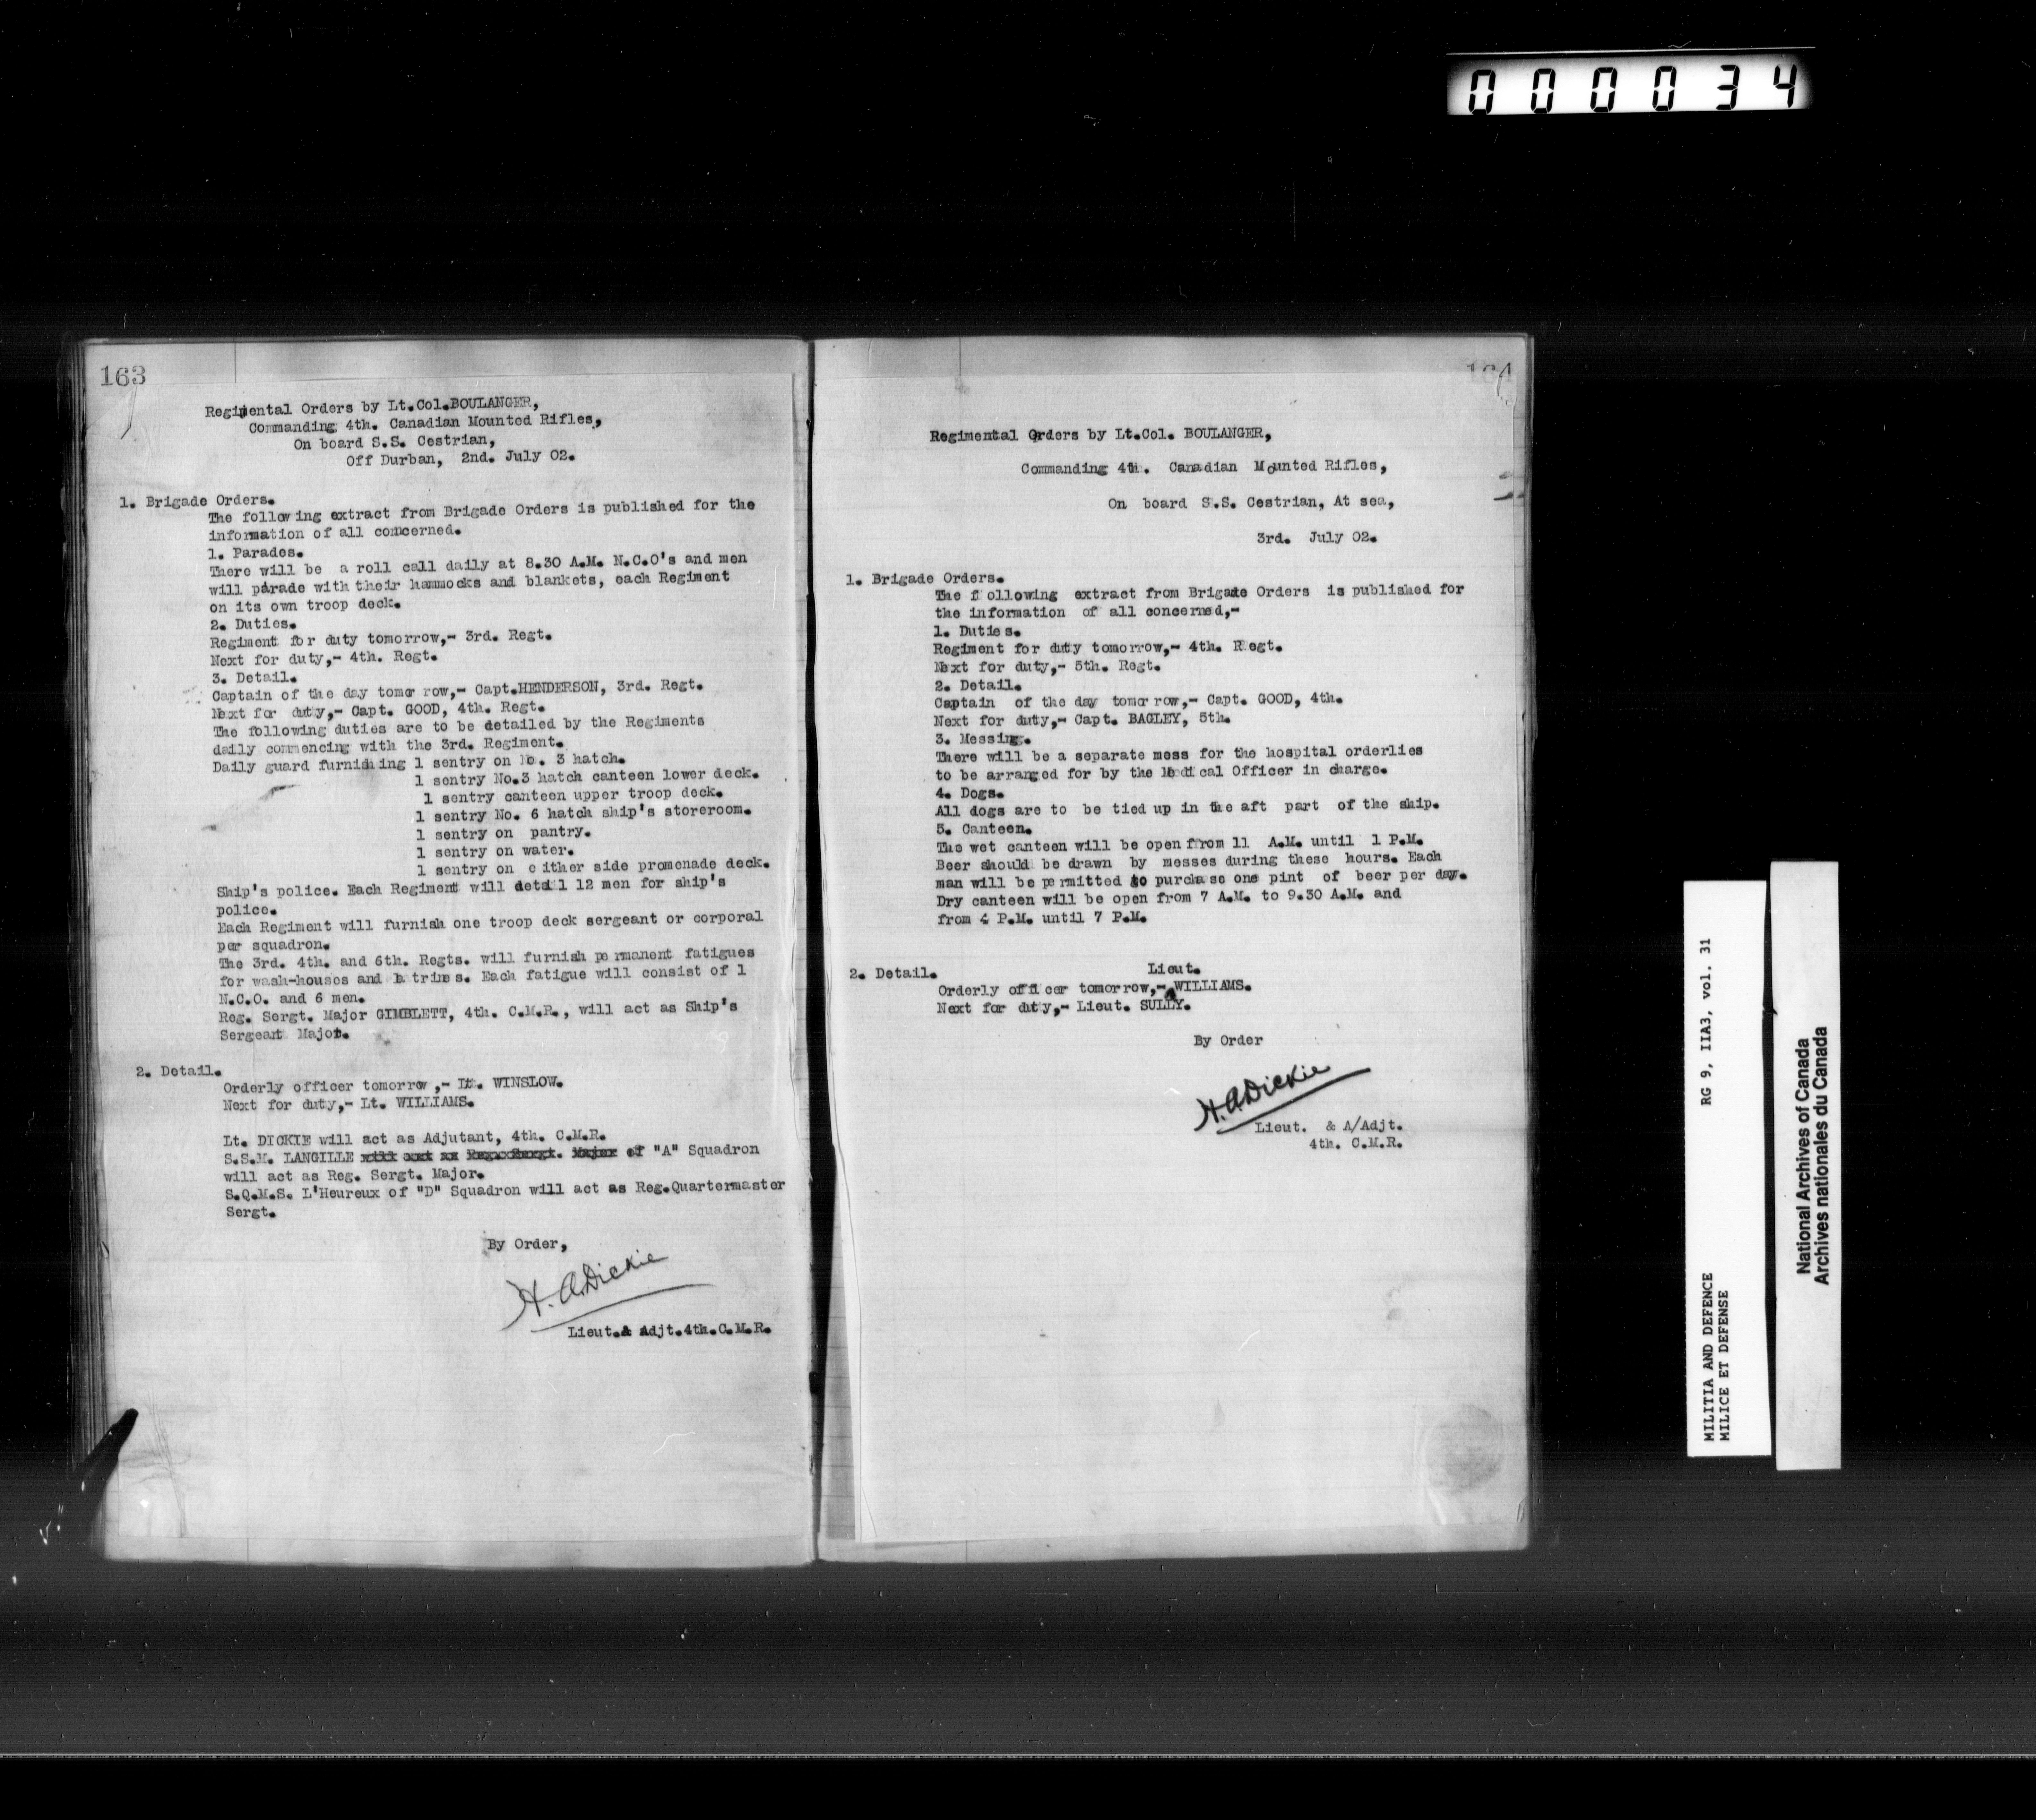 000034
163
Regimental Orders by Lt.Col.BOULANGER,
Commanding 4th. Canadian Mounted Rifles,
On board S.S. Cestrian,
Off Durban, 2nd. July 02.
1. Brigade Orders.
The following extract from Brigade Orders is published for the
information of all concerned.
1. Parades.
There will be a roll call daily at 8.30 A.M. N.C.O's and men
will parade with their hammocks and blankets, each Regiment
on its own troop deck.
2. Duties.
Regiment for duty tomorrow,- 3rd. Regt.
Next for duty,- 4th. Regt.
3. Detail.
Captain of the day tomorrow,- Capt.HENDERSON, 3rd. Regt.
Next for duty,- Capt. GOOD, 4th. Regt.
The following duties are to be detailed by the Regiments
daily commencing with the 3rd. Regiment.
Daily guard furnishing 1 sentry on No. 3 hatch.
1 sentry No.3 hatch canteen lower deck.
1 sentry canteen upper troop deck.
1 sentry No. 6 hatch ship's storeroom.
1 sentry on pantry.
1 sentry on water.
1 sentry on either side promenade deck.
Ship's police. Each Regiment will detail 12 men for ship's
police.
Each Regiment will furnish one troop deck sergeant or corporal
per squadron.
The 3rd. 4th. and 6th. Regts. will furnish permanent fatigues
for wash-houses and latrines. Each fatigue will consist of 1
N.C.O. and 6 men.
Reg. Sergt. Major GIMBLETT, 4th. C.M.R., will act as Ship's
Sergeant Major.
2. Detail.
Orderly officer tomorrow,- Lt. WINSLOW.
Next for duty,- Lt. WILLIAMS.
Lt. DICKIE will act as Adjutant, 4th. C.M.R.
S.S.M. LANGILLE will act as Reg. Sergt. Major of "A" Squadron
will act as Reg. Sergt. Major.
S.Q.M.S. L'Heureux of "D" Squadron will act as Reg.Quartermaster
Sergt.
By Order,
H.A.Dickie
Lieut.& Adjt.4th.C.M.R.
164
Regimental Orders by Lt.Col. BOULANGER,
Commanding 4th. Canadian Mounted Rifles,
On board S.S. Cestrian, At sea,
3rd. July 02.
1. Brigade Orders.
The following extract from Brigade Orders is published for
the information of all concerned,-
1. Duties.
Regiment for duty tomorrow,- 4th. Regt.
Next for duty,- 5th. Regt.
2. Detail.
Captain of the day tomorrow,- Capt. GOOD, 4th.
Next for duty,- Capt. BAGLEY, 5th.
3. Messing.
There will be a separate mess for the hospital orderlies
to be arranged for by the Medical Officer in charge.
4. Dogs.
All dogs are to be tied up in the aft part of the ship.
5. Canteen.
The wet canteen will be open from 11 A.M. until 1 P.M.
Beer should be drawn by messes during these hours. Each
man will be permitted to purchase one pint of beer per day.
Dry canteen will be open from 7 A.M. to 9.30 A.M. and
from 4 P.M. until 7 P.M.
2. Detail.
Lieut.
Orderly officer tomorrow,- WILLIAMS.
Next for duty,- Lieut. SULLY.
By Order
H.A.Dickie
Lieut. & A/Adjt.
4th. C.M.R.
MILITIA AND DEFENCE RG 9, IIA3, vol. 31
MILICE ET DEFENSE
National Archives of Canada
Archives nationales du Canada